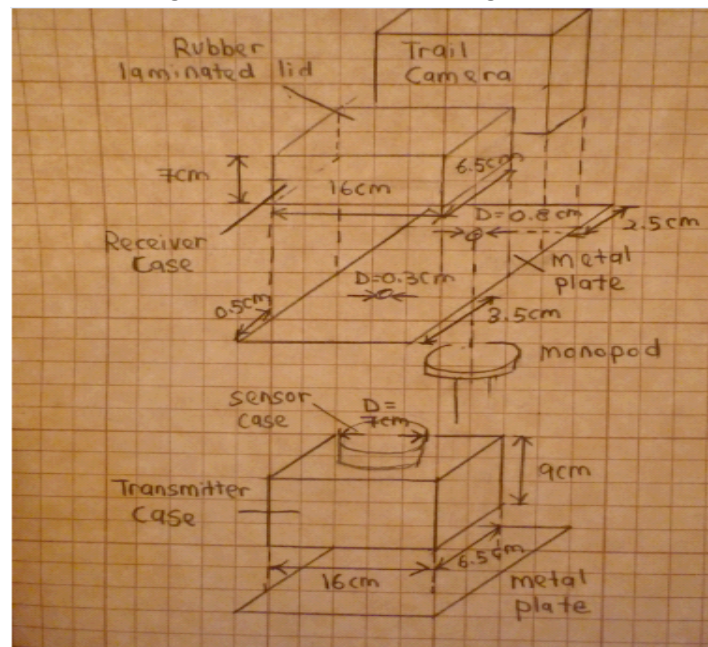 Rubber
laminated lid
Trail
Camera
7cm
16cm
6.5cm
D=0.8cm
2.5cm
Receiver
Case
D=0.3cm
metal
plate
0.5cm
3.5cm
monopod
sensor
case
D=
7cm
9cm
Transmitter
Case
16cm
6.5cm
metal
plate